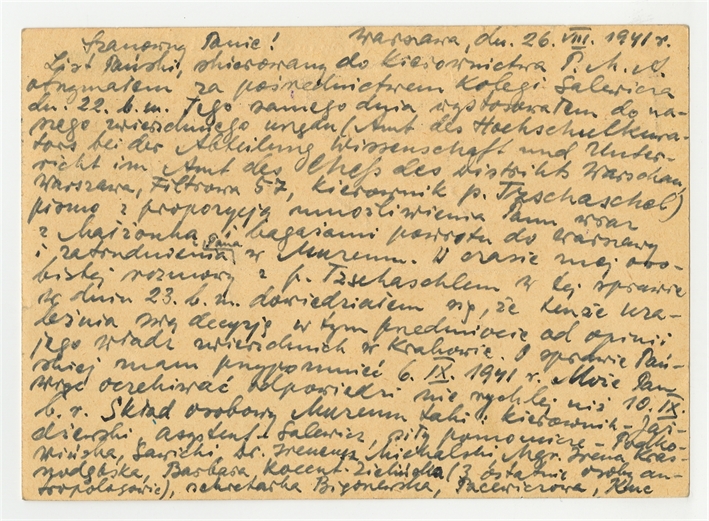 Szanowny Panie! Warszawa, dn. 26. VIII. 1941 r.
List Pański, skierowany do Kierownictwa P. M. A.
otrzymałem za pośrednictwem Kolegi Salewicza
dn. 22. b. m. Tego samego dnia wystosowałem do na-
szego zwierzchniego urzędu (Amt des Hochschulkura-
tors bei der Abteilung Wissenschaft und Unter-
richt im Amt des Chefs des Distrikts Warschau,
Warszawa, Filtrowa 57, kierownik p. Tzschaschel)
pismo z propozycją umożliwienia Panu wraz
z Małżonką i bagażami powrotu do Warszawy
i zatrudnienia Pana w Muzeum. W czasie mej oso-
bistej rozmowy z p. Tzschaschlem w tej sprawie
w dniu 23. b. m. dowiedziałem się, że tenże uza-
leżnia swą decyzję w tym przedmiocie od opinii
jego władz zwierzchnich w Krakowie. O sprawie Pań-
skiej mam przypomnieć 6. IX 1941 r. Może Pan
więc oczekiwać odpowiedzi nie rychlej niż 10. IX
b. r. Skład osobowy Muzeum taki: kierownik - Jaż-
dżewski, asystent - Salewicz, siły pomocnicze -
wińska, Sawicki, Dr. Ireneusz Michalski, Mgr. Irena Kras-
nodębska, Barbara Zielińska (3 ostatnie osoby an-
tropologowie), sekretarka